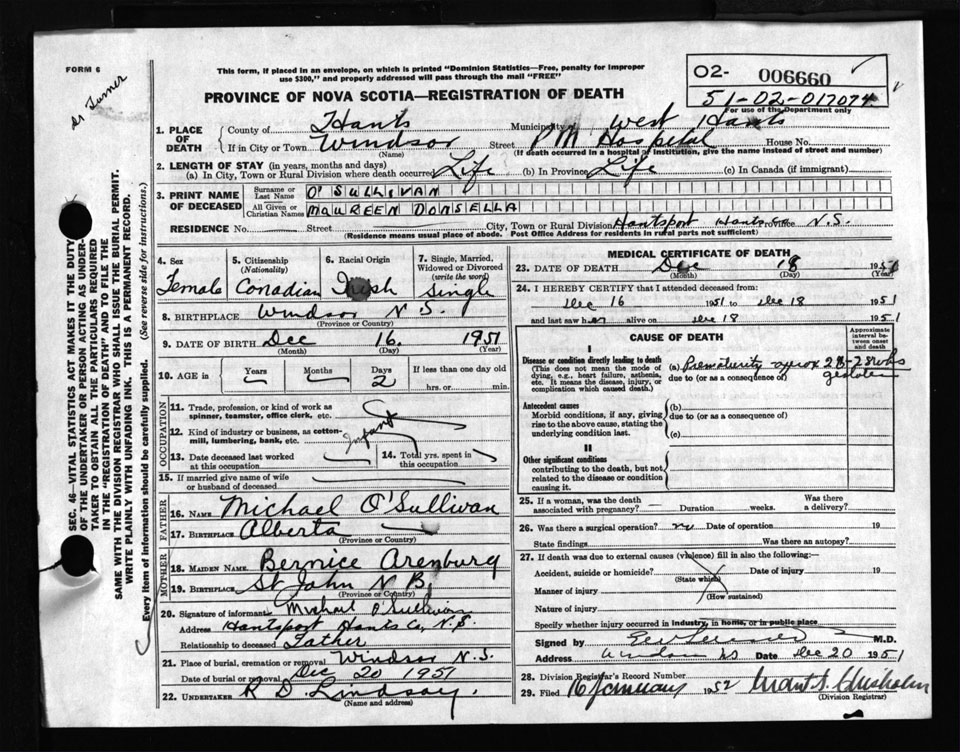 FORM 6
Dr Turner
This form, if placed in an envelope, on which is printed "Dominion Statistics—Free, penalty for improper
use $300," and properly addressed will pass through the mail "FREE"
PROVINCE OF NOVA SCOTIA—REGISTRATION OF DEATH
02- 006660
51-02-017074
For use of the Department only
1. PLACE OF DEATH
County of Hants Municipality of West Hants
If in City or Town Windsor Street P M Hospital House No.
(Name) (If death occurred in a hospital or institution, give the name instead of street and number)
2. LENGTH OF STAY (in years, months and days)
(a) In City, Town or Rural Division where death occurred Life (b) In Province Life (c) In Canada (if immigrant)
3. PRINT NAME OF DECEASED
Surname or Last Name O'SULLIVAN
All Given or Christian Names MAUREEN DONSELLA
RESIDENCE No. Street City, Town or Rural Division Hantsport Hants Co Province N.S.
(Residence means usual place of abode. Post Office Address for residents in rural parts not sufficient)
4. Sex Female
5. Citizenship (Nationality) Canadian
6. Racial Origin Irish
7. Single, Married, Widowed or Divorced (write the word) Single
8. BIRTHPLACE Windsor N S.
(Province or Country)
9. DATE OF BIRTH Dec 16 1951
(Month) (Day) (Year)
10. AGE in Years Months Days 2 If less than one day old hrs. or min.
OCCUPATION
11. Trade, profession, or kind of work as spinner, teamster, office clerk, etc.
12. Kind of industry or business, as cotton-mill, lumbering, bank, etc. Infant
13. Date deceased last worked at this occupation
14. Total yrs. spent in this occupation
15. If married give name of wife or husband of deceased
FATHER
16. NAME Michael O'Sullivan
17. BIRTHPLACE Alberta
MOTHER
18. MAIDEN NAME Bernice Arenburg
19. BIRTHPLACE St John N B.
(Province or Country)
20. Signature of informant Michael O'Sullivan
Address Hantsport Hants Co, N.S.
Relationship to deceased Father
21. Place of burial, cremation or removal Windsor N.S.
Date of burial or removal Dec 20 1951
22. UNDERTAKER R D Lindsay.
(Name and address)
MEDICAL CERTIFICATE OF DEATH
23. DATE OF DEATH Dec 18 1951
(Month) (Day) (Year)
24. I HEREBY CERTIFY that I attended deceased from:
Dec 16 1951 to Dec 18 1951
and last saw her alive on Dec 18 1951
CAUSE OF DEATH
Approximate interval between onset and death
I
Disease or condition directly leading to death
(This does not mean the mode of dying, e.g., heart failure, asthenia, etc. It means the disease, injury, or complication which caused death.)
(a) Prematurity approx
due to (or as a consequence of)
Antecedent causes
Morbid conditions, if any, giving rise to the above cause, stating the underlying condition last.
(b)
due to (or as a consequence of)
(c)
II
Other significant conditions
contributing to the death, but not related to the disease or condition causing it.
25. If a woman, was the death associated with pregnancy? — Duration weeks. Was there a delivery?
26. Was there a surgical operation? no Date of operation 19
State findings Was there an autopsy?
27. If death was due to external causes (violence) fill in also the following:
Accident, suicide or homicide? Date of injury 19
(State which)
Manner of injury
(How sustained)
Nature of injury
Specify whether injury occurred in industry, in home, or in public place
Signed by M.D.
Address Windsor NS Date Dec 20 1951
28. Division Registrar's Record Number
29. Filed 16 January 1952 Chisholm
(Division Registrar)
SEC. 46—VITAL STATISTICS ACT MAKES IT THE DUTY
OF THE UNDERTAKER OR PERSON ACTING AS UNDER-
TAKER TO OBTAIN ALL THE PARTICULARS REQUIRED
IN THE "REGISTRATION OF DEATH" AND TO FILE THE
SAME WITH THE DIVISION REGISTRAR WHO SHALL ISSUE THE BURIAL PERMIT.
WRITE PLAINLY WITH UNFADING INK. THIS IS A PERMANENT RECORD.
Every item of information should be carefully supplied. (See reverse side for instructions.)